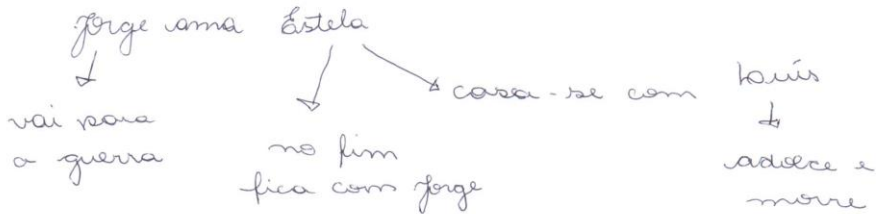 Jorge ama Estela
vai para
a guerra
no fim
fica com Jorge
casa-se com Louis
adoece e
morre